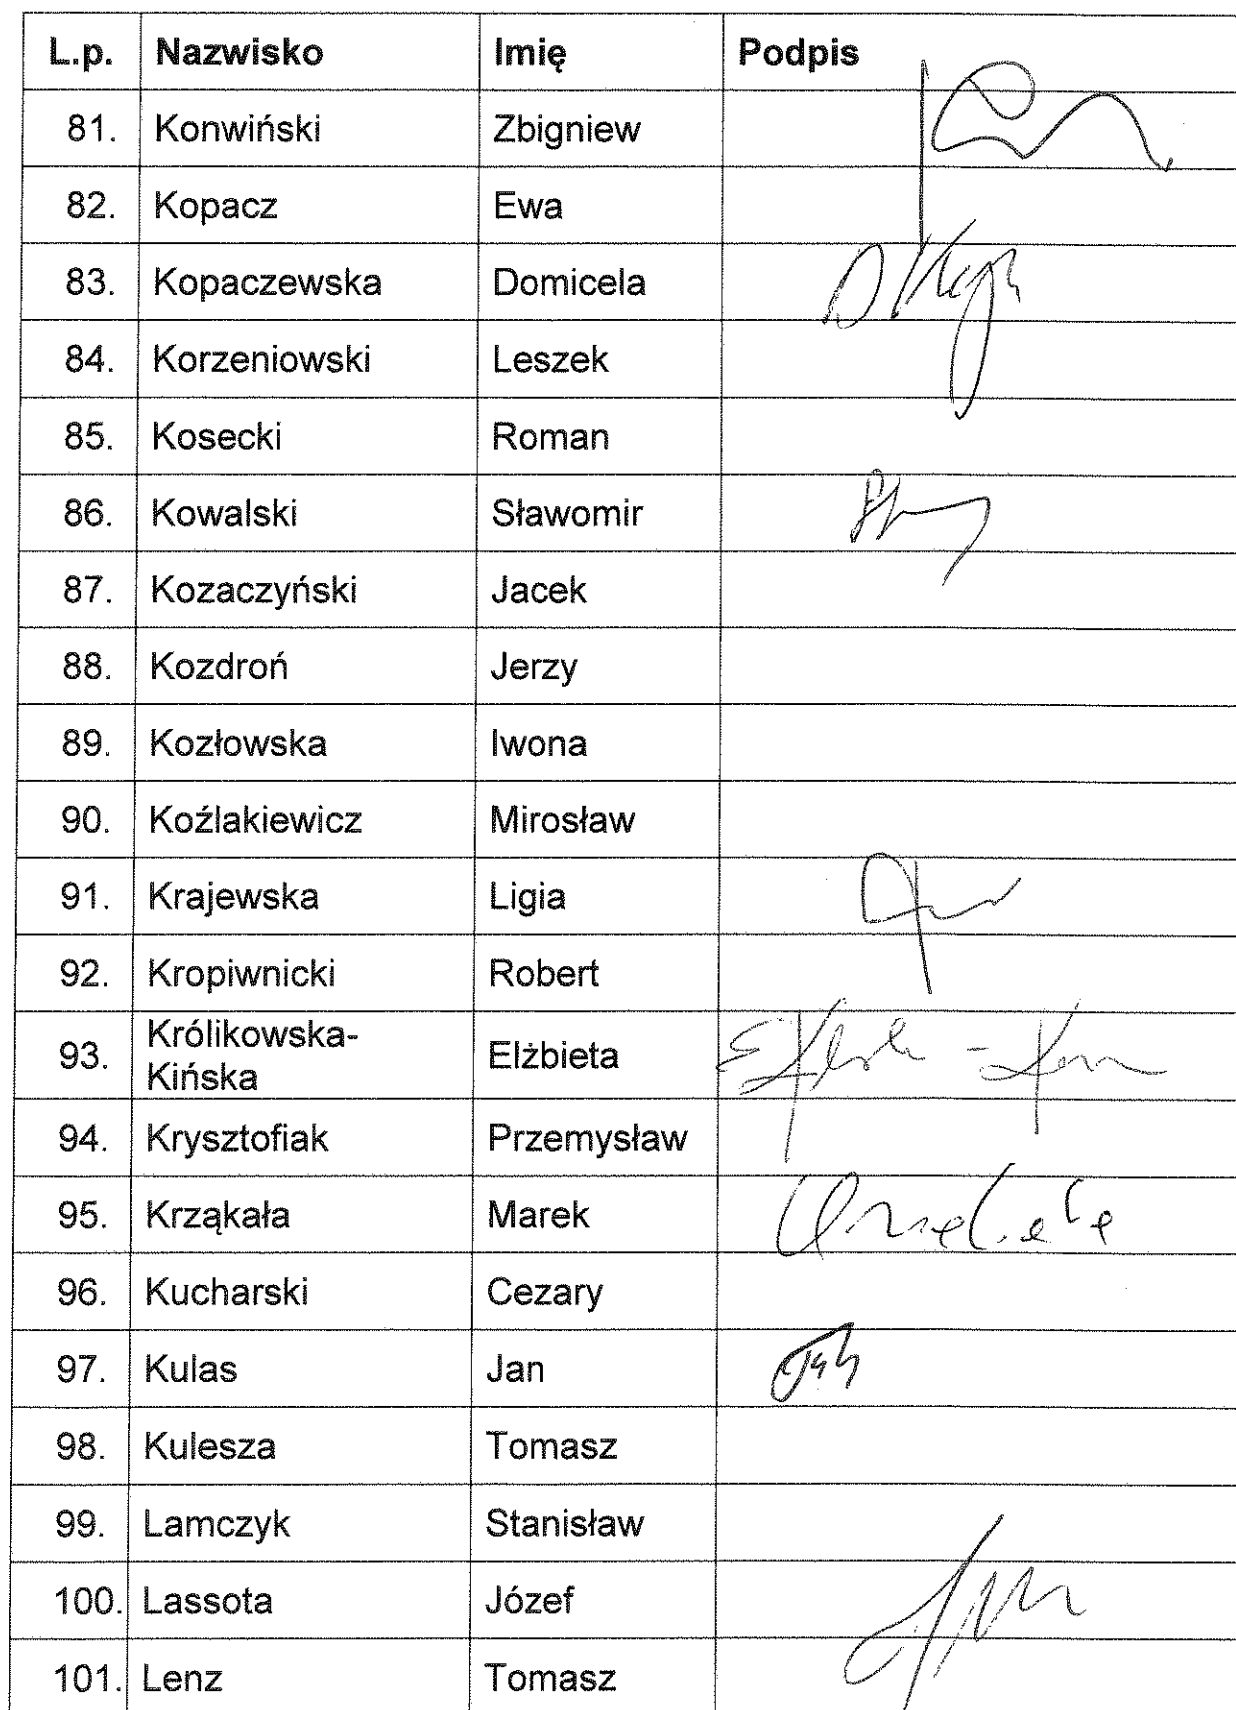 L.p. Nazwisko Imię Podpis
81. Konwiński Zbigniew
82. Kopacz Ewa
83. Kopaczewska Domicela
84. Korzeniowski Leszek
85. Kosecki Roman
86. Kowalski Sławomir
87. Kozaczyński Jacek
88. Kozdroń Jerzy
89. Kozłowska Iwona
90. Koźlakiewicz Mirosław
91. Krajewska Ligia
92. Kropiwnicki Robert
93. Królikowska-
Kińska Elżbieta
94. Krysztofiak Przemysław
95. Krząkała Marek
96. Kucharski Cezary
97. Kulas Jan
98. Kulesza Tomasz
99. Lamczyk Stanisław
100. Lassota Józef
101. Lenz Tomasz